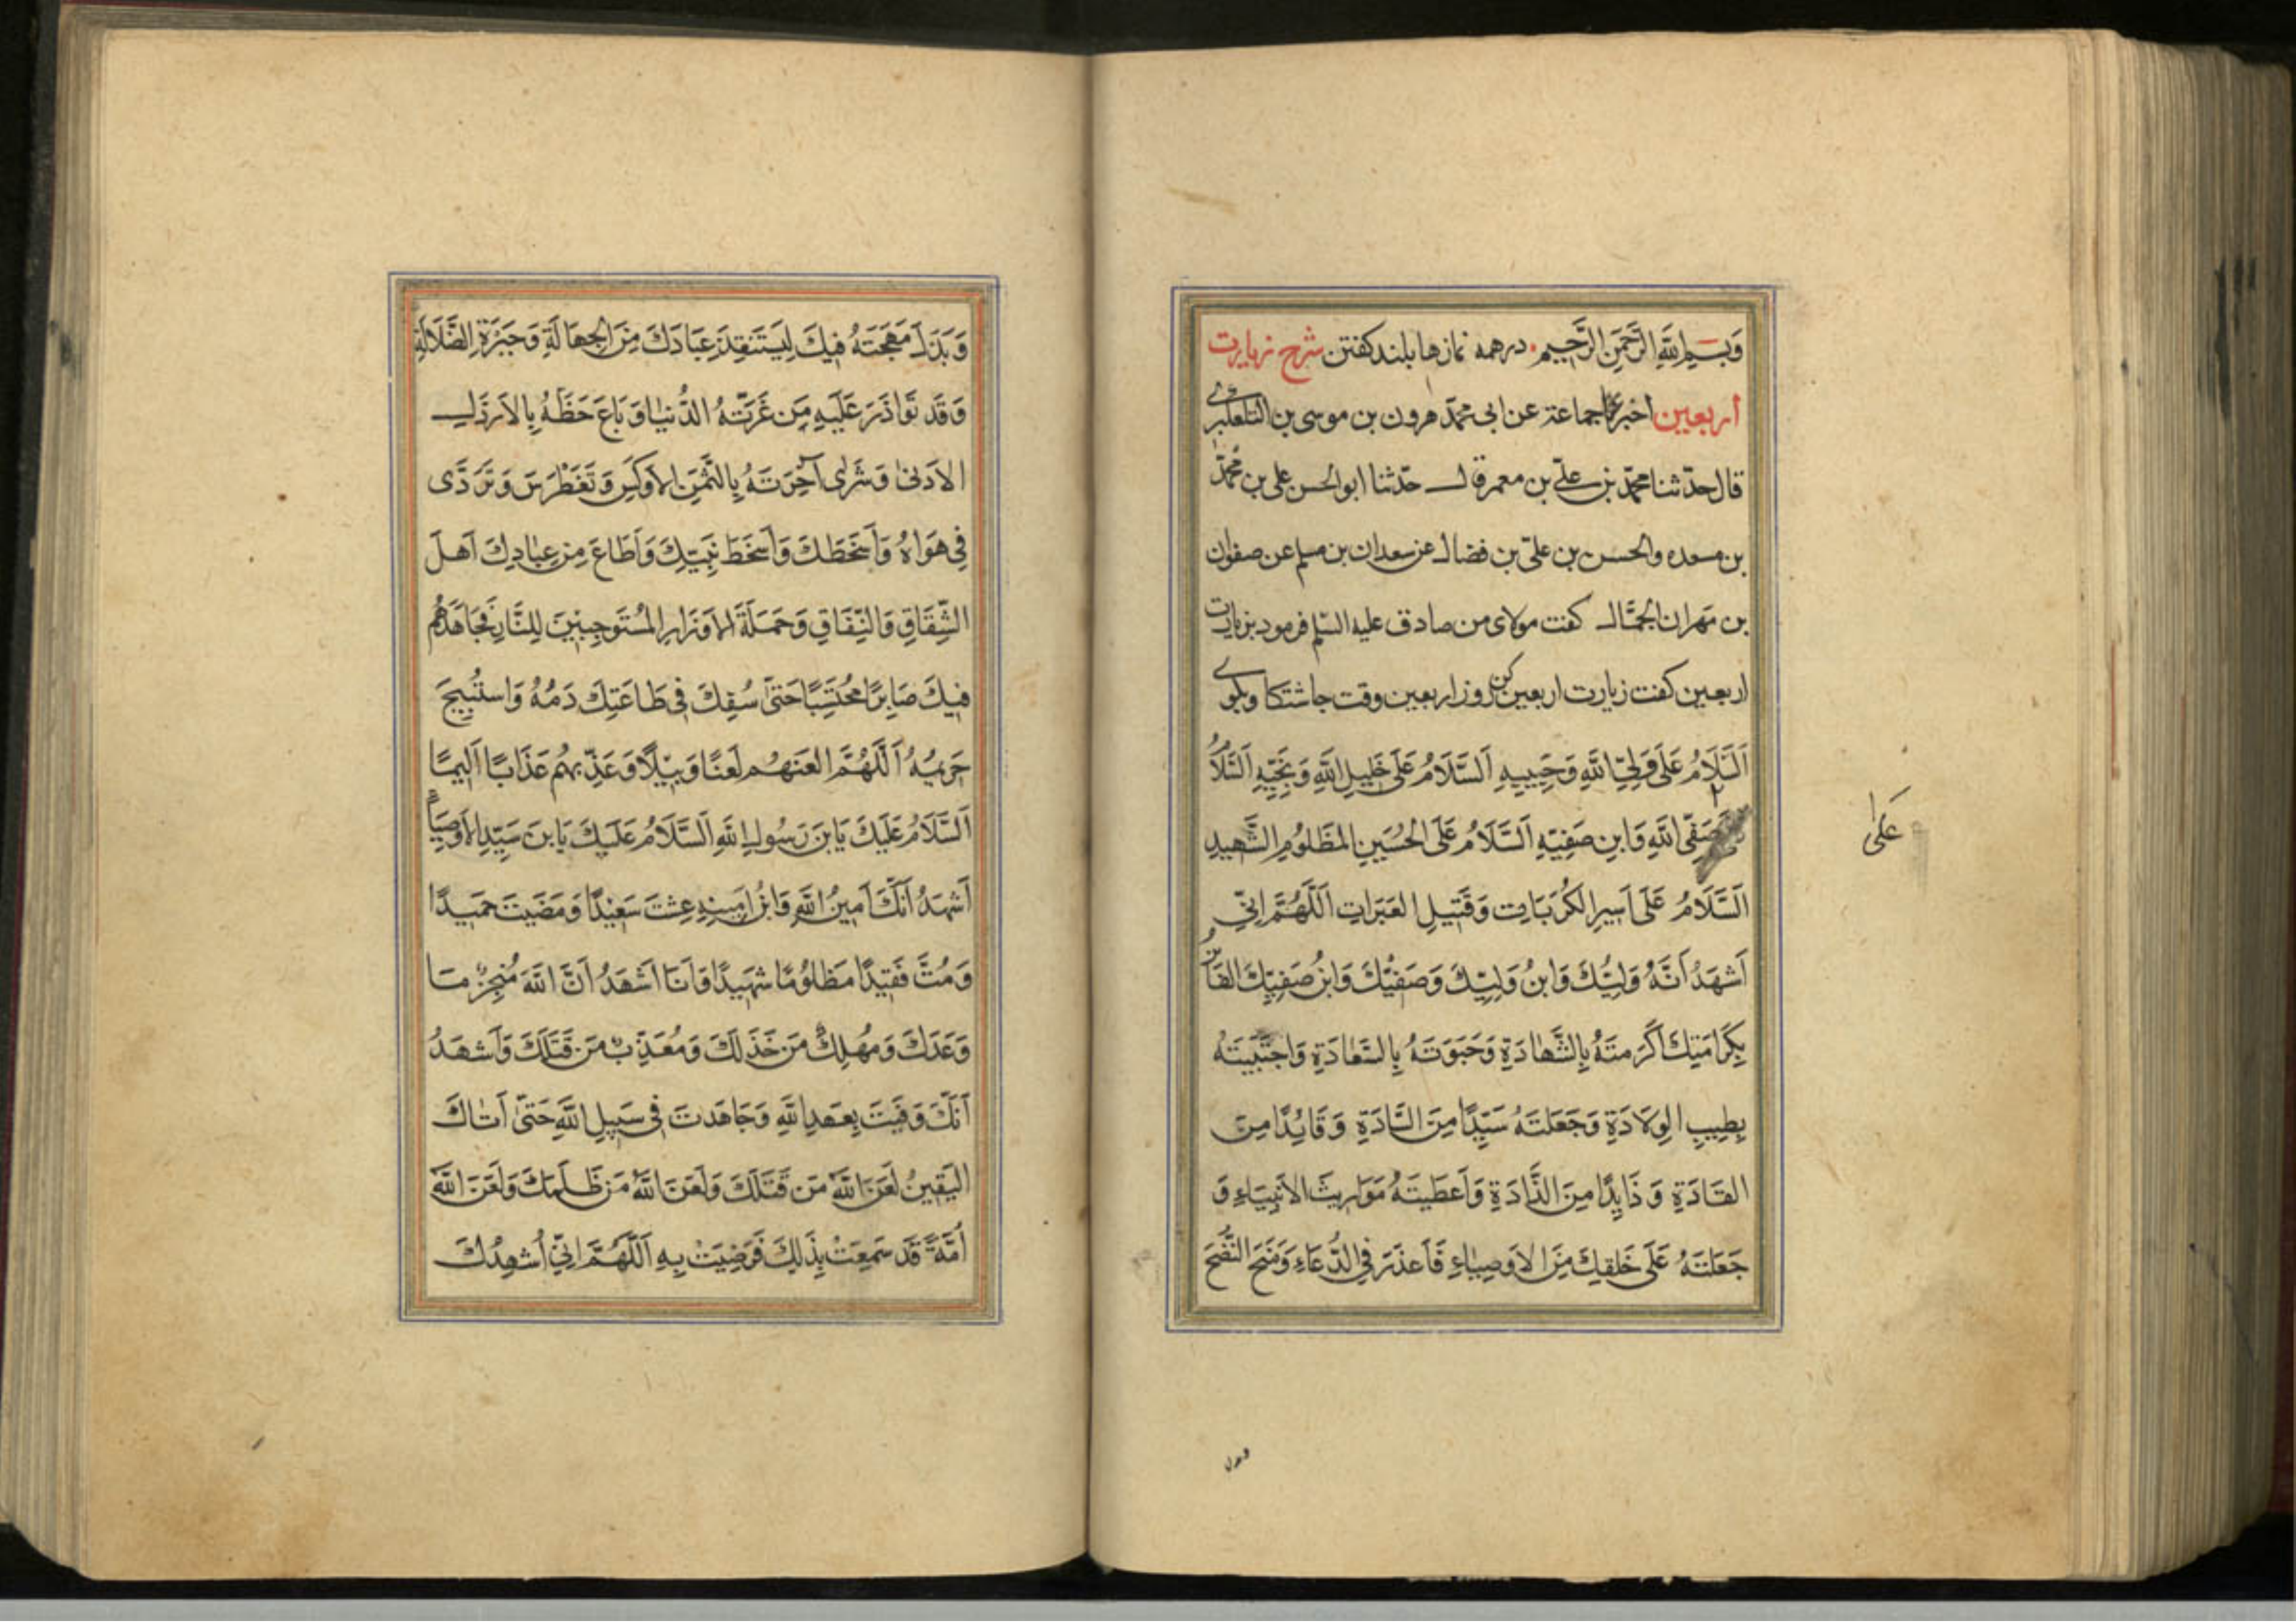 وَبِسْمِ اللهِ الرَّحْمَنِ الرَّحِيمِ. در همه نمازها بلند كفتن شرح زيارت
اربعين اخبرنا جماعة عن ابى محمّد هرون بن موسى بن التلعكبرى
قال حدّثنا محمّد بن علىّ بن معمر قال حدّثنا ابوالحسن على بن محمّد
بن مسعده والحسن بن علىّ بن فضال عن سعدان بن مسلم عن صفوان
بن مهران الجمّال كفت مولاى من صادق عليه السّلم فرمود بزيارت
اربعين كفت زيارت اربعين كن روز اربعين وقت جاشتكا وبكوى
اَلسَّلَامُ عَلَى وَلِىِّ اللهِ وَحَبِيبِهِ اَلسَّلَامُ عَلَى خَلِيلِ اللهِ وَنَجِيِّهِ اَلسَّلَامُ
صَفِىِّ اللهِ وَابنِ صَفِيِّهِ اَلسَّلَامُ عَلَى الحُسَينِ المَظلُومِ الشَّهِيدِ
عَلىٰ
اَلسَّلَامُ عَلَى اَسِيرِ الكُرُبَاتِ وَقَتِيلِ العَبَرَاتِ اَللّهُمَّ اِنِّى
اَشهَدُ اَنَّهُ وَلِيُّكَ وَابنُ وَلِيِّكَ وَصَفِيُّكَ وَابنُ صَفِيِّكَ الفَائز
بِكَرَامَتِكَ اَكرَمتَهُ بِالشَّهَادَةِ وَحَبَوتَهُ بِالسَّعَادَةِ وَاجتَبَيتَهُ
بِطِيبِ الوِلَادَةِ وَجَعَلتَهُ سَيِّدًا مِنَ السَّادَةِ وَقَائِدًا مِنَ
القَادَةِ وَذَايِدًا مِنَ الذَّادَةِ وَاَعطَيتَهُ مَوَارِيثَ الاَنبِيَاءِ وَ
جَعَلتَهُ عَلَى خَلقِكَ مِنَ الاَوصِيَاءِ فَاَعذَرَ فِى الدُّعَاءِ وَمَنَحَ النُّصحَ
وَبَذَلَ مُهجَتَهُ فِيكَ لِيَستَنقِذَ عِبَادَكَ مِنَ الجَهَالَةِ وَحَيرَةِ الضَّلَالَةِ
وَقَد تَوَاذَرَ عَلَيهِ مَن غَرَّتهُ الدُّنيَا وَبَاعَ حَظَّهُ بِالاَرذَلِ
الاَدنىٰ وَشَرىٰ آخِرَتَهُ بِالثَّمَنِ الاَوكَسِ وَتَغَطرَسَ وَتَرَدَّى
فِى هَوَاهُ وَاَسخَطَكَ وَاَسخَطَ نَبِيَّكَ وَاَطَاعَ مِن عِبَادِكَ اَهلَ
الشِّقَاقِ وَالنِّفَاقِ وَحَمَلَةَ الاَوزَارِ المُستَوجِبِينَ لِلنَّارِ فَجَاهَدَهُم
فِيكَ صَابِرًا مُحتَسِبًا حَتىّٰ سُفِكَ فِى طَاعَتِكَ دَمُهُ وَاستُبِيحَ
حَرِيمُهُ اَللّهُمَّ العَنهُم لَعنًا وَبِيلًا وَعَذِّبهُم عَذَابًا اَلِيمًا
اَلسَّلَامُ عَلَيكَ يَابنَ رَسُولِ اللهِ اَلسَّلَامُ عَلَيكَ يَابنَ سَيِّدِ الاَوصِيَاءِ
اَشهَدُ اَنَّكَ اَمِينُ اللهِ وَابنُ اَمِينِهِ عِشتَ سَعِيدًا وَمَضَيتَ حَمِيدًا
وَمُتَّ فَقِيدًا مَظلُومًا شَهِيدًا وَاَنَا اَشهَدُ اَنَّ اللهَ مُنجِزٌ مَا
وَعَدَكَ وَمُهلِكٌ مَن خَذَلَكَ وَمُعَذِّبٌ مَن قَتَلَكَ وَاَشهَدُ
اَنَّكَ وَفَيتَ بِعَهدِ اللهِ وَجَاهَدتَ فِى سَبِيلِ اللهِ حَتىّٰ اَتٰاكَ
اليَقِينُ لَعَنَ اللهُ مَن قَتَلَكَ وَلَعَنَ اللهُ مَن ظَلَمَكَ وَلَعَنَ اللهُ
اُمَّةً قَد سَمِعَتْ بِذَلِكَ فَرَضِيَتْ بِهِ اَللّهُمَّ اِنِّى اُشهِدُكَ